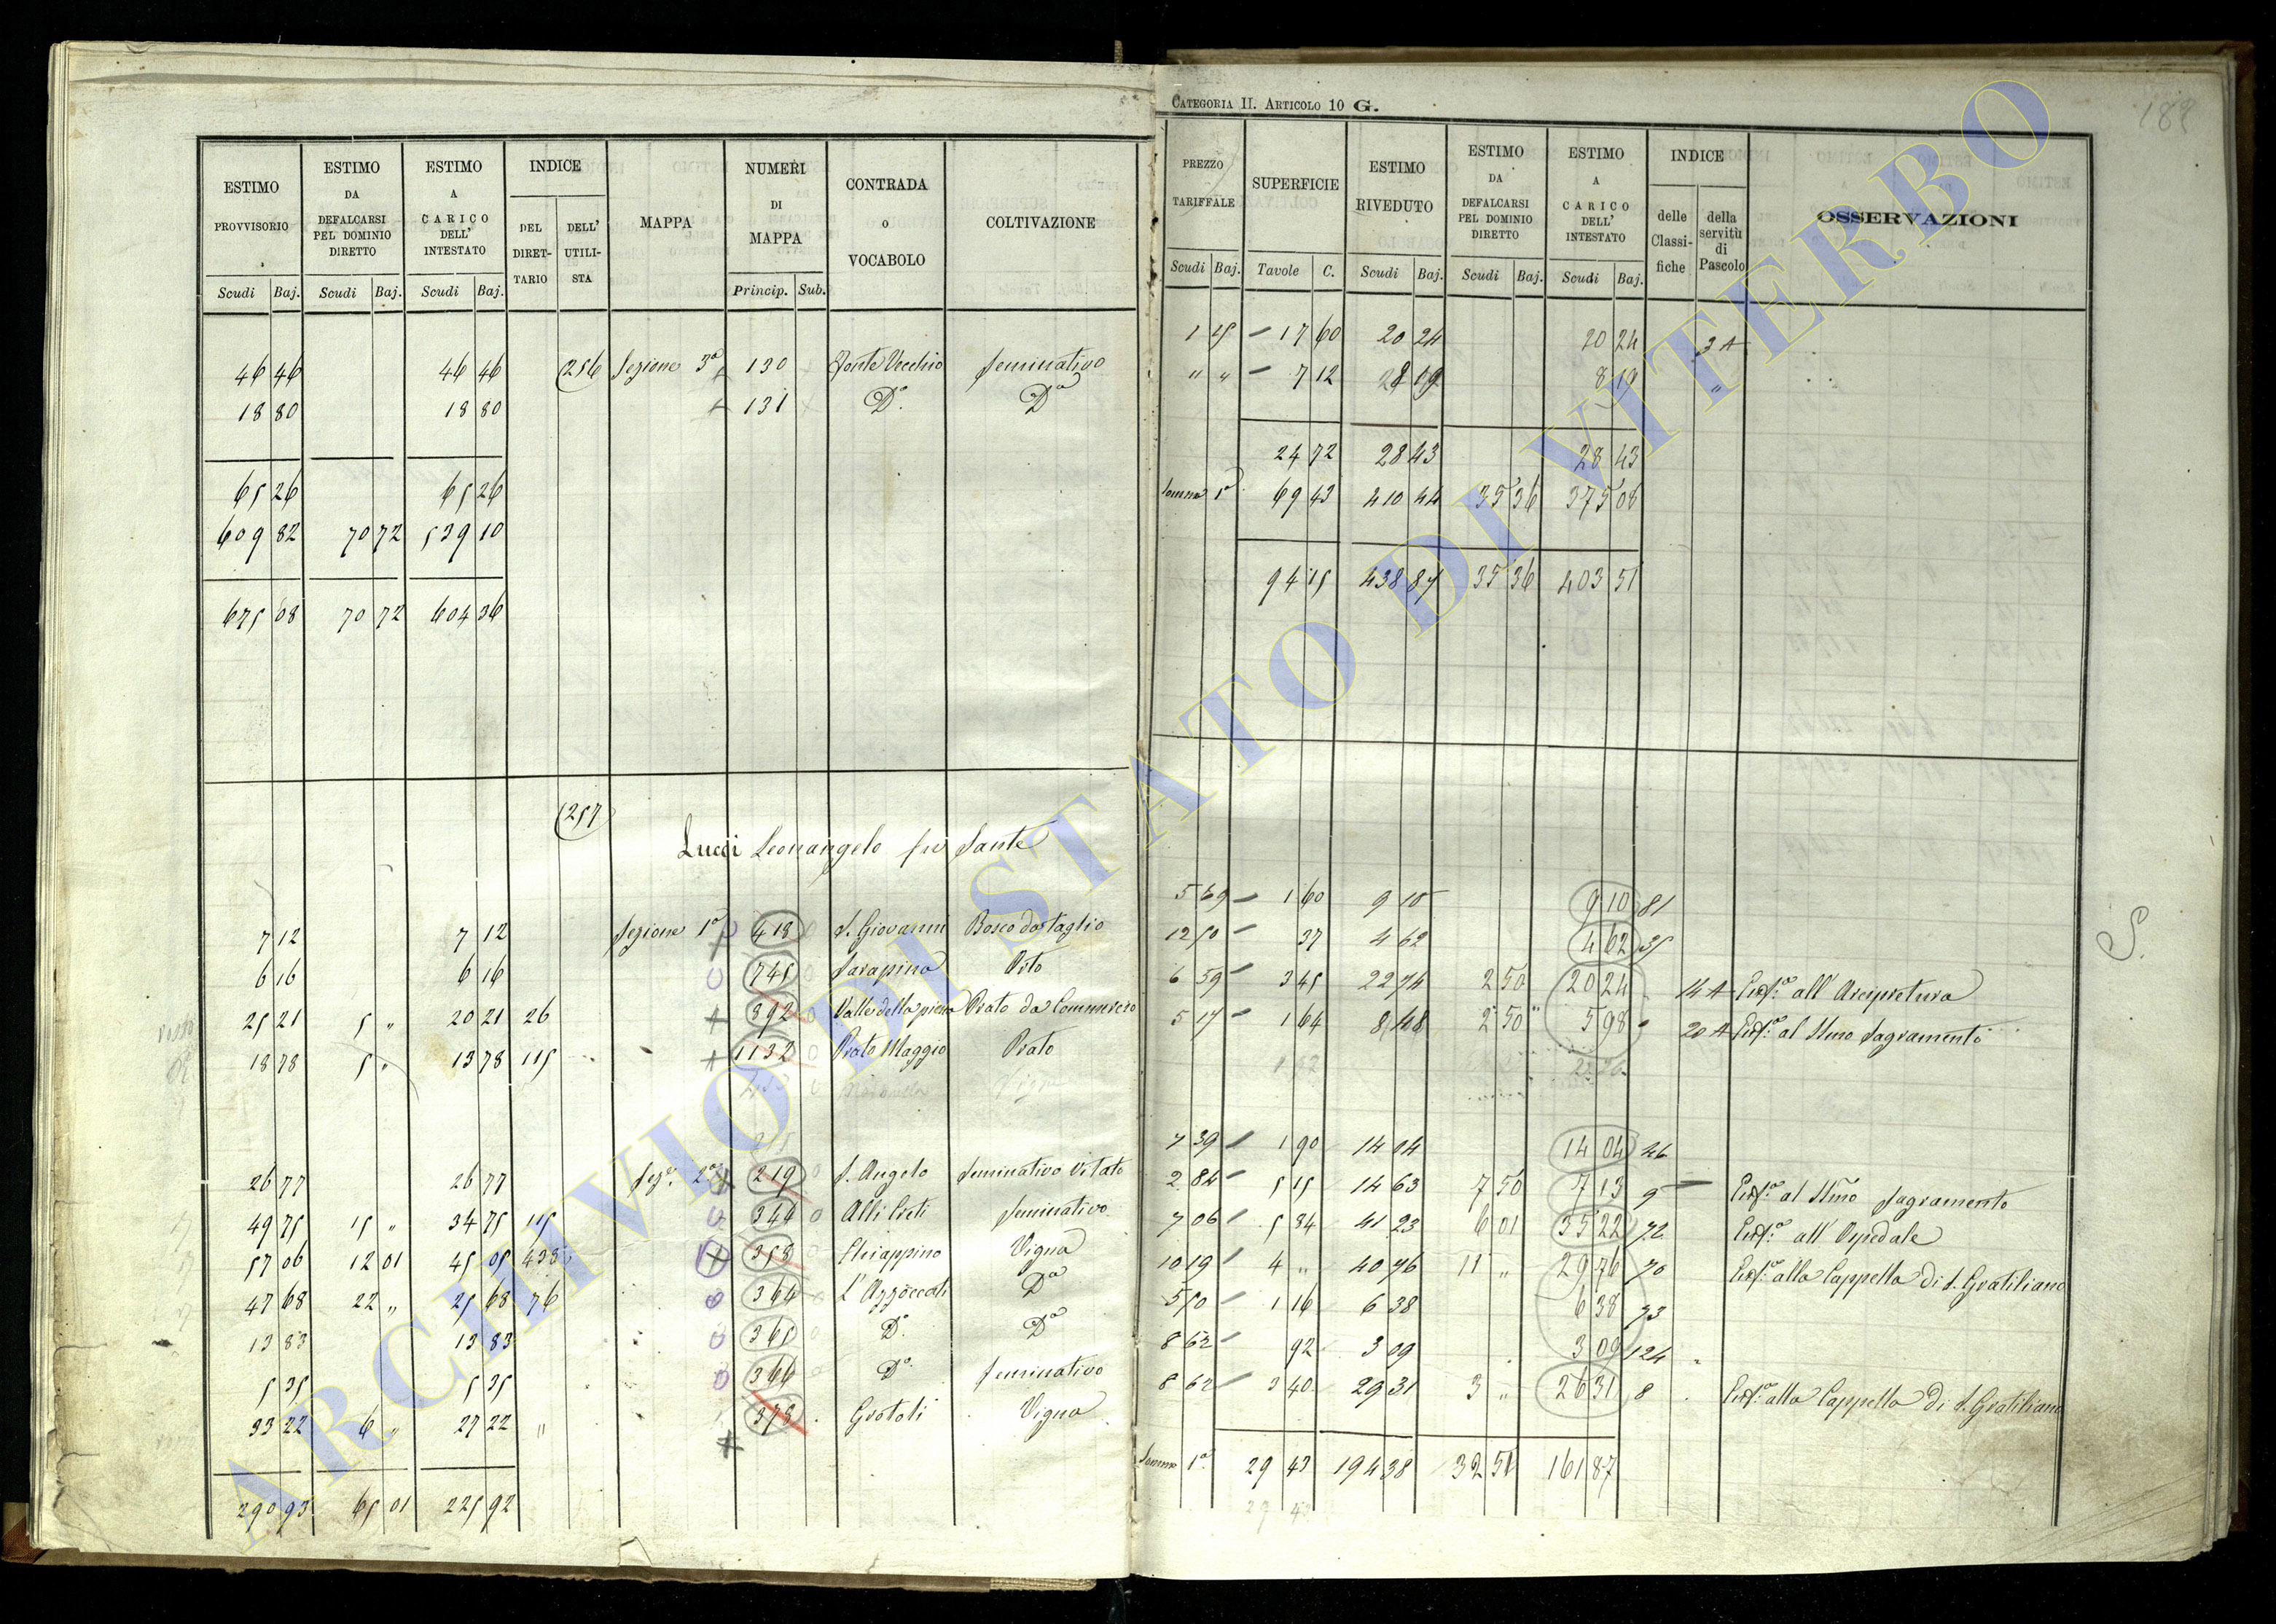 CATEGORIA II. ARTICOLO 10 G.
189
ESTIMO PROVVISORIO | ESTIMO DA DEFALCARSI PEL DOMINIO DIRETTO | ESTIMO A CARICO DELL' INTESTATO | INDICE | MAPPA | NUMERI DI MAPPA | CONTRADA O VOCABOLO | COLTIVAZIONE
DEL DIRETTARIO | DELL' UTILISTA
Scudi | Baj. | Scudi | Baj. | Scudi | Baj. | Princip. | Sub.
46 46 | 46 46 | 256 | Sezione 3ª | 130 | Fonte Vecchio | Seminativo
18 80 | 18 80 | 131 | Dº | Dº
65 26 | 65 26
609 82 | 70 72 | 539 10
675 08 | 70 72 | 604 36
257
Lucci Leonangelo fu Sante
7 12 | 7 12 | Sezione 1ª | 418 | S. Giovanni | Bosco da taglio
6 16 | 6 16 | 745 | Sarapina | Orto
25 21 | 5 " | 20 21 | 26 | 892 | Valle della pieve | Prato da Commercio
18 78 | 5 " | 13 78 | 115 | 1132 | Prato Maggio | Prato
Vigna
26 77 | 26 77 | Sezº 2ª | 219 | S. Angelo | Seminativo Vitato
49 75 | 15 " | 34 75 | 115 | 344 | Alli Preti | Seminativo
57 06 | 12 01 | 45 05 | 433 | 358 | Chiappino | Vigna
47 68 | 22 " | 25 68 | 76 | 364 | L'Azzoccati | Dª
13 83 | 13 83 | 365 | Dº | Dª
5 35 | 5 35 | 366 | Dº | Seminativo
33 22 | 6 " | 27 22 | " | 378 | Grotoli | Vigna
290 93 | 65 01 | 225 92
PREZZO TARIFFALE | SUPERFICIE | ESTIMO RIVEDUTO | ESTIMO DA DEFALCARSI PEL DOMINIO DIRETTO | ESTIMO A CARICO DELL' INTESTATO | INDICE | OSSERVAZIONI
delle Classifiche | della servitù di Pascolo
Scudi | Baj. | Tavole | C. | Scudi | Baj. | Scudi | Baj. | Scudi | Baj.
1 15 | 17 60 | 20 24 | 20 24 | 3 A
" " | 7 12 | 8 19 | 8 19 | "
24 72 | 28 43 | 28 43
Somma 1ª | 69 43 | 410 44 | 35 36 | 375 08
94 15 | 438 87 | 35 36 | 403 51
5 69 | 1 60 | 9 10 | 9 10 | 81
12 50 | 37 | 4 62 | 4 62 | 35
6 59 | 3 45 | 22 74 | 2 50 | 20 24 | 14 A | Enfª all'Arcipretura
5 17 | 1 64 | 8 48 | 2 50 | 5 98 | 20 A | Enfª al Ssmo Sagramento
7 39 | 1 90 | 14 04 | 14 04 | 46
2 84 | 5 15 | 14 63 | 7 50 | 7 13 | 9 | Enfª al Ssmo Sagramento
7 06 | 5 84 | 41 23 | 6 01 | 35 22 | 72 | Enfª all'Ospedale
10 19 | 4 " | 40 76 | 11 " | 29 76 | 70 | Enfª alla Cappella di S. Gratiliano
5 50 | 1 16 | 6 38 | 6 38 | 73
92 | 3 09 | 3 09 | 124
8 62 | 3 40 | 29 31 | 3 " | 26 31 | 8 | Enfª alla Cappella di S. Gratiliano
Somma 1ª | 29 43 | 194 38 | 32 51 | 161 87
29 43
S.
ARCHIVIO DI STATO DI VITERBO